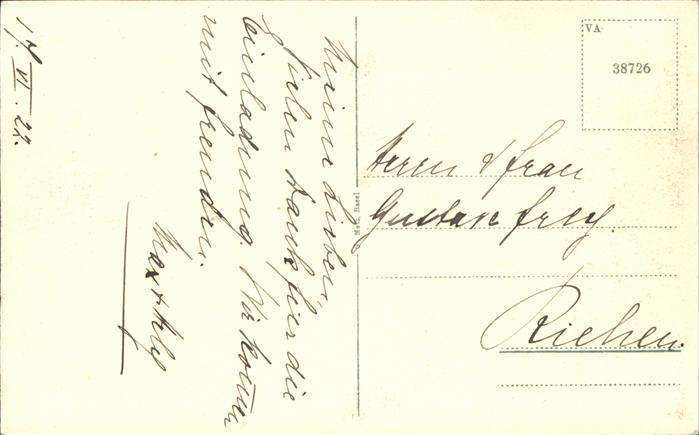 17. VI. 22.
Meine Lieben,
Vielen Dank für die
Einladung. Wir kommen
mit Freuden.
VA
38726
Herrn & Frau
Gustav Frey.
Riehen.
Basel